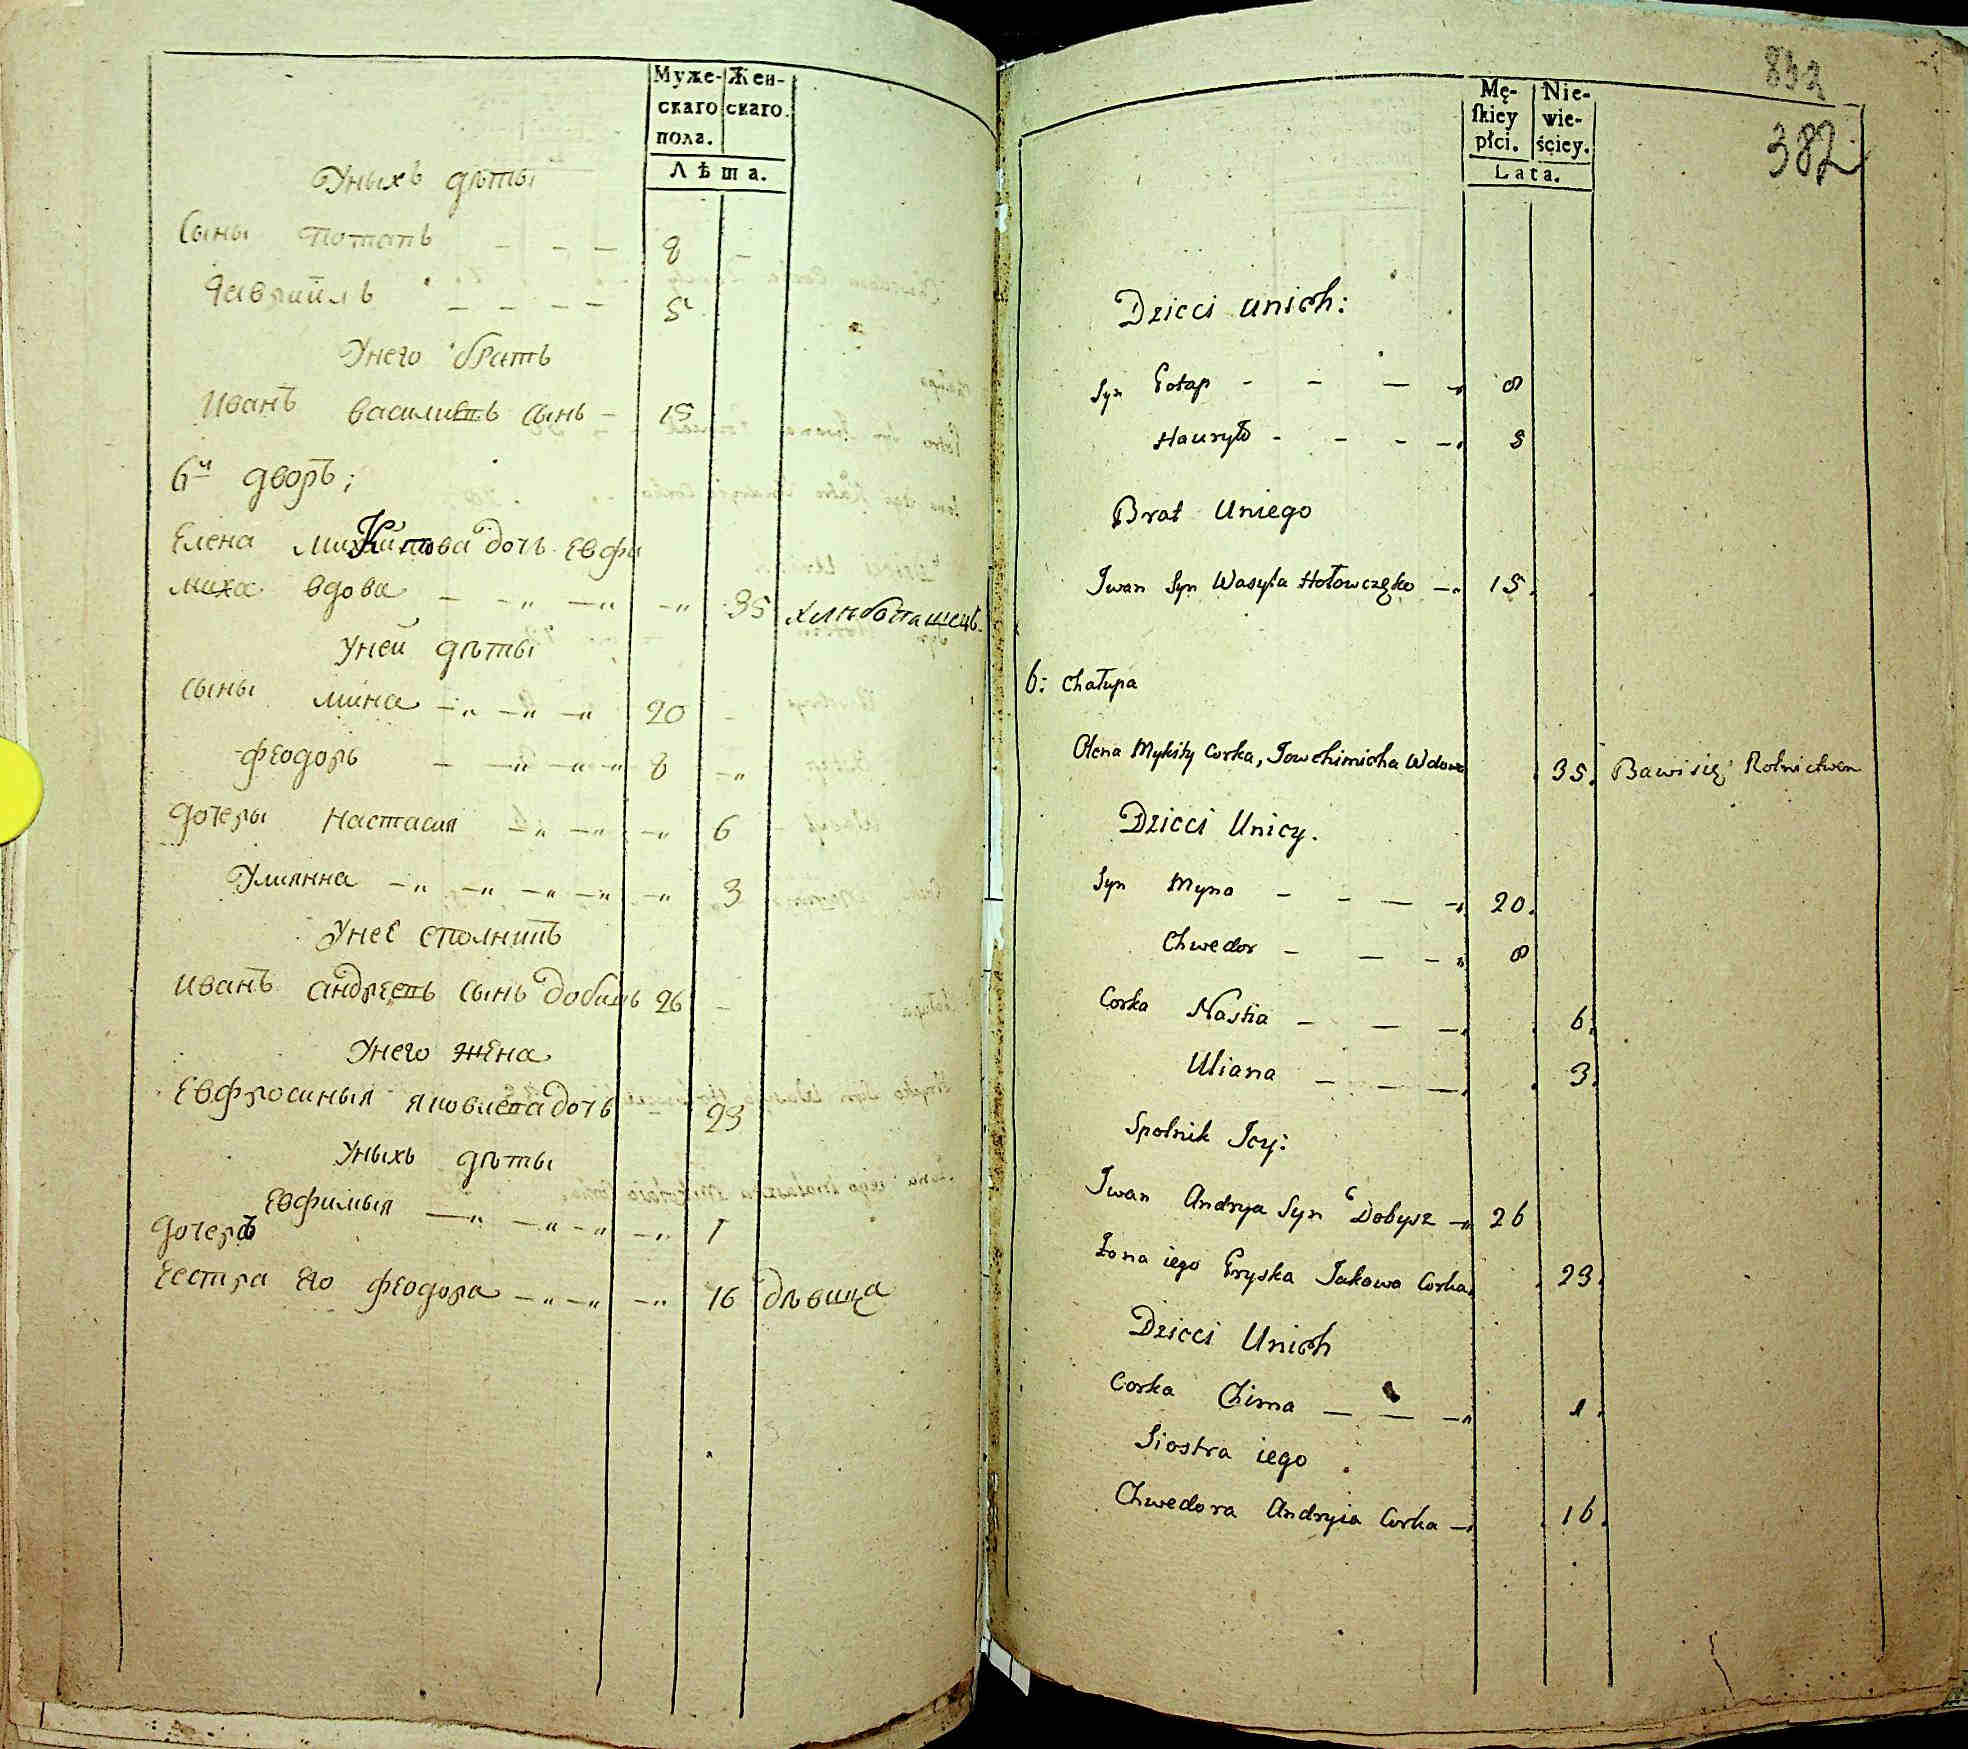 Муже- Жен-
скаго скаго.
пола.
Лѣта.
Уныхъ дѣты
Сыны Потапъ — — — 8 —
Гавриилъ — — — — 5
Унего братъ
Иванъ василиевъ сынъ — 15
6й дворъ;
Елена Микитова дочь Евфи
миха вдова — — — — 35 хлѣбопашецъ.
Уней дѣты
Сыны мина — — — 20 —
феодоръ — — — 8 —
дочеры Настасия — — — 6
Улиянна — — — — — 3
Унеё сполникъ
Иванъ андреевъ сынъ добышъ 26 —
Унего жена
Евфросиныя яковлева дочь 23
Уныхъ дѣты
Евфимыя — — — — 1
дочеръ
Сестра его феодора — — — 16 дѣвица
852
382
Mę- Nie-
skiey wie-
płci. ściey.
Lata.
Dzieci unich:
Syn Potap - - — — 8
Hauryło - - - — 5
Brat Uniego
Iwan Syn Wasyla Hołowczęko — 15.
6: Chałupa
Olena Mykity Corka, Jowchimicha Wdowa 35. Bawi się Rolnictwem
Dzieci Uniey.
Syn Myna - - — — 20.
Chwedor - — - — 8
Corka Nastia — — — 6.
Uliana — — — 3.
Spolnik Jey:
Iwan Andrya Syn Dobysz — 26
Żona iego Pryska Jakowa Corka. 23.
Dzieci Unich
Corka Chima — — — 1.
Siostra iego
Chwedora Andryia Corka — 16.